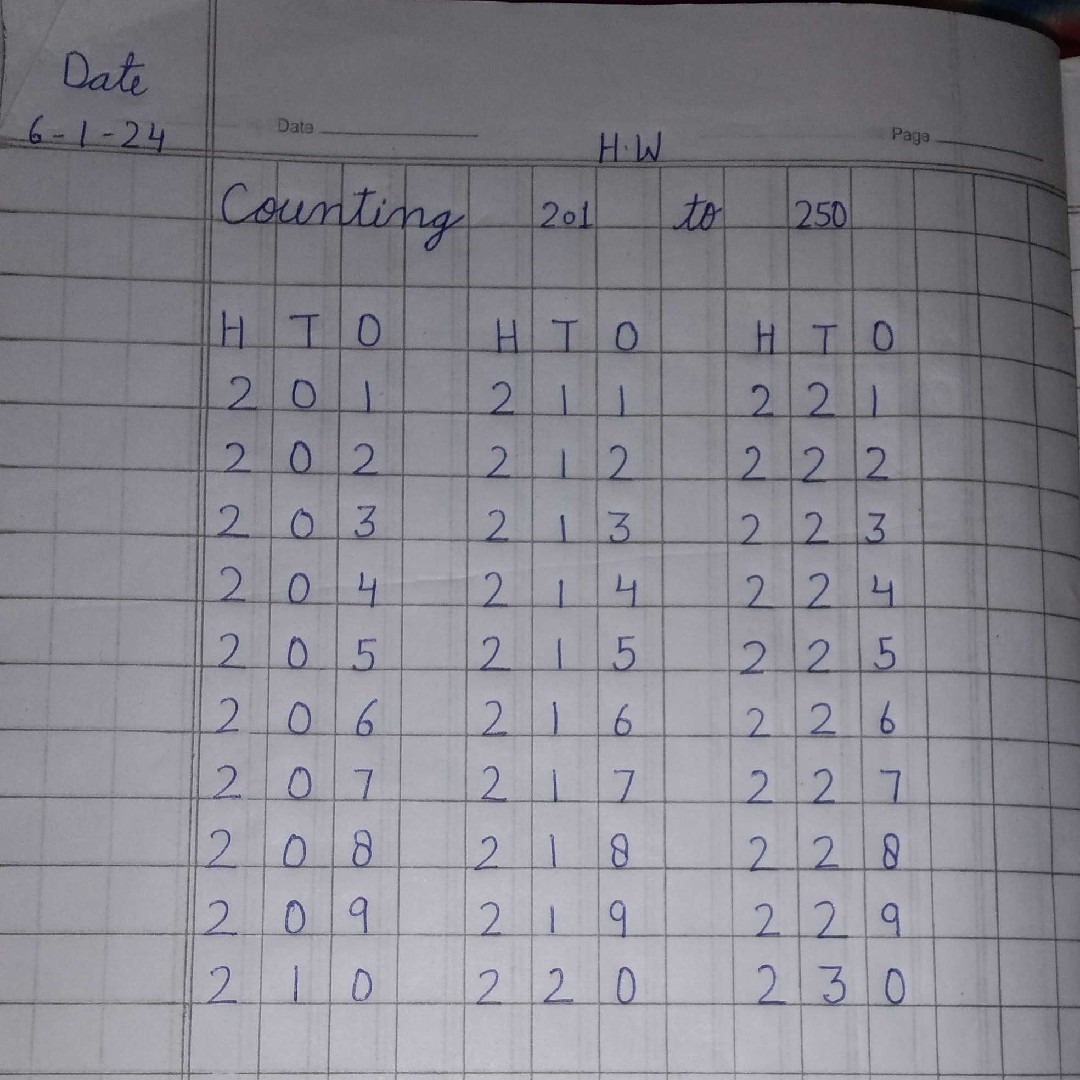 Date
6-1-24
Date Page
H.W
Counting 201 to 250
H T O H T O H T O
2 0 1 2 1 1 2 2 1
2 0 2 2 1 2 2 2 2
2 0 3 2 1 3 2 2 3
2 0 4 2 1 4 2 2 4
2 0 5 2 1 5 2 2 5
2 0 6 2 1 6 2 2 6
2 0 7 2 1 7 2 2 7
2 0 8 2 1 8 2 2 8
2 0 9 2 1 9 2 2 9
2 1 0 2 2 0 2 3 0